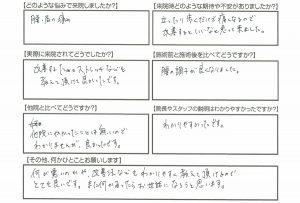 【どのような悩みで来院しましたか?】
腰・肩の痛み
【来院時どのような期待や不安がありましたか?】
立ったり歩んだけでも痛くなるので
改善するといいなと思って来ました。
【実際に来院されてどうでしたか?】
改善するためのストレッチなども
教えて頂けて良かったです。
【施術前と施術後を比べてどうですか?】
腰の調子が良くなりました。
【他院と比べてどうですか?】
他院にかかったことは無いので
わかりませんが、良かったです。
【院長やスタッフの説明はわかりやすかったですか?】
わかりやすかったです。
【その他、何かひとことお願いします】
何が悪いのかや、改善法などもわかりやすく教えて頂けるので
とても良いです。また何かあったらお世話になろうと思います。